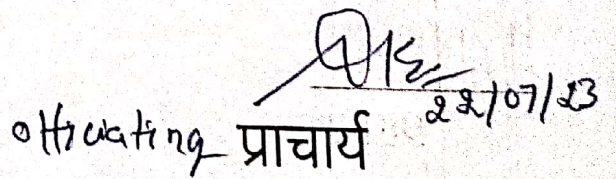 22/07/23
officiating प्राचार्य